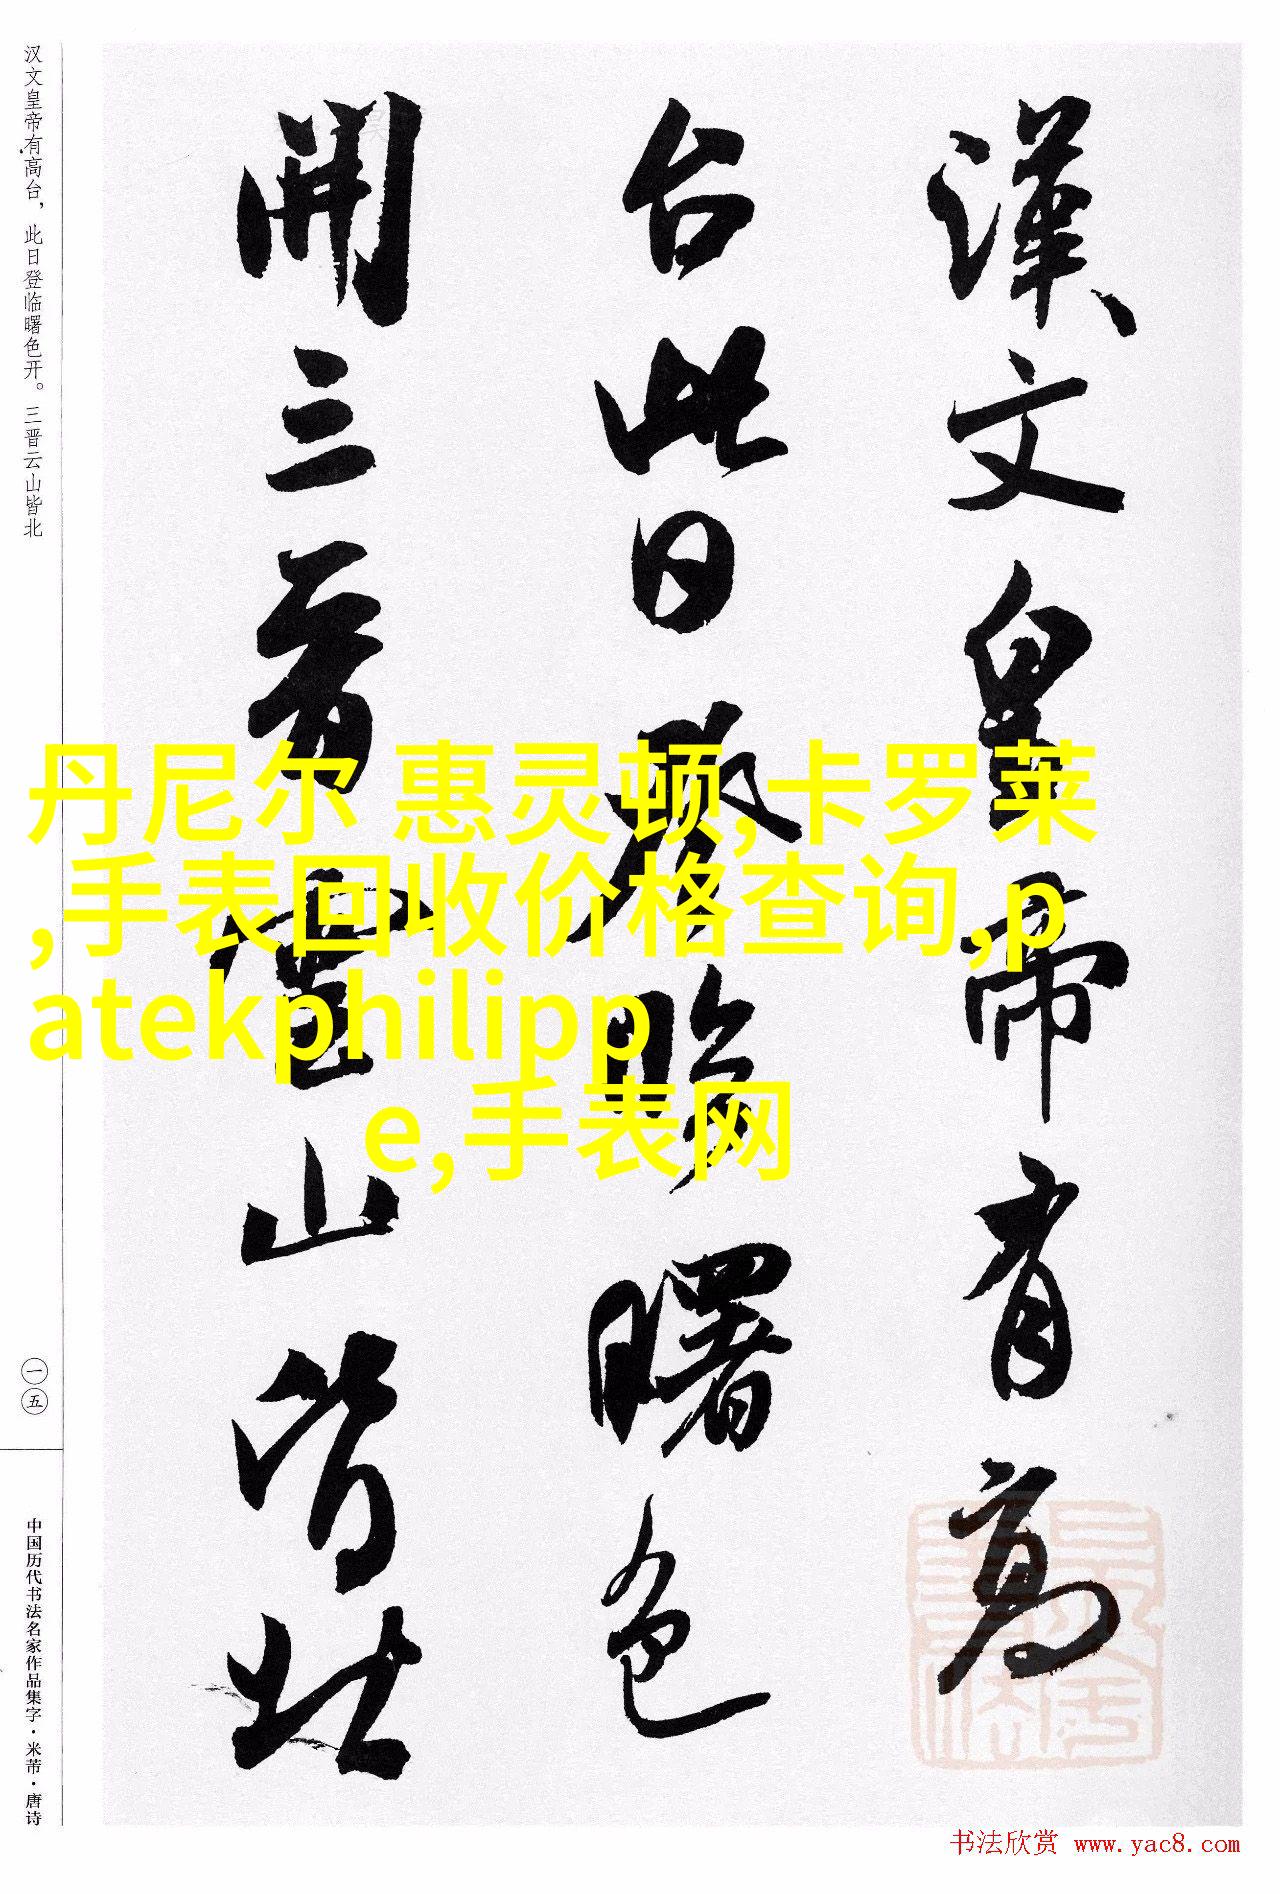 漢文皇帝有高
台此日登臨曙色
開三晉雲山皆北
汉文皇帝有高台，此日登临曙色开。三晋云山皆北
一五
中国历代书法名家作品集字·米芾·唐诗
丹尼尔 惠灵顿,卡罗莱
,手表回收价格查询,p
atekphilipp
e,手表网
书法欣赏 www.yac8.com